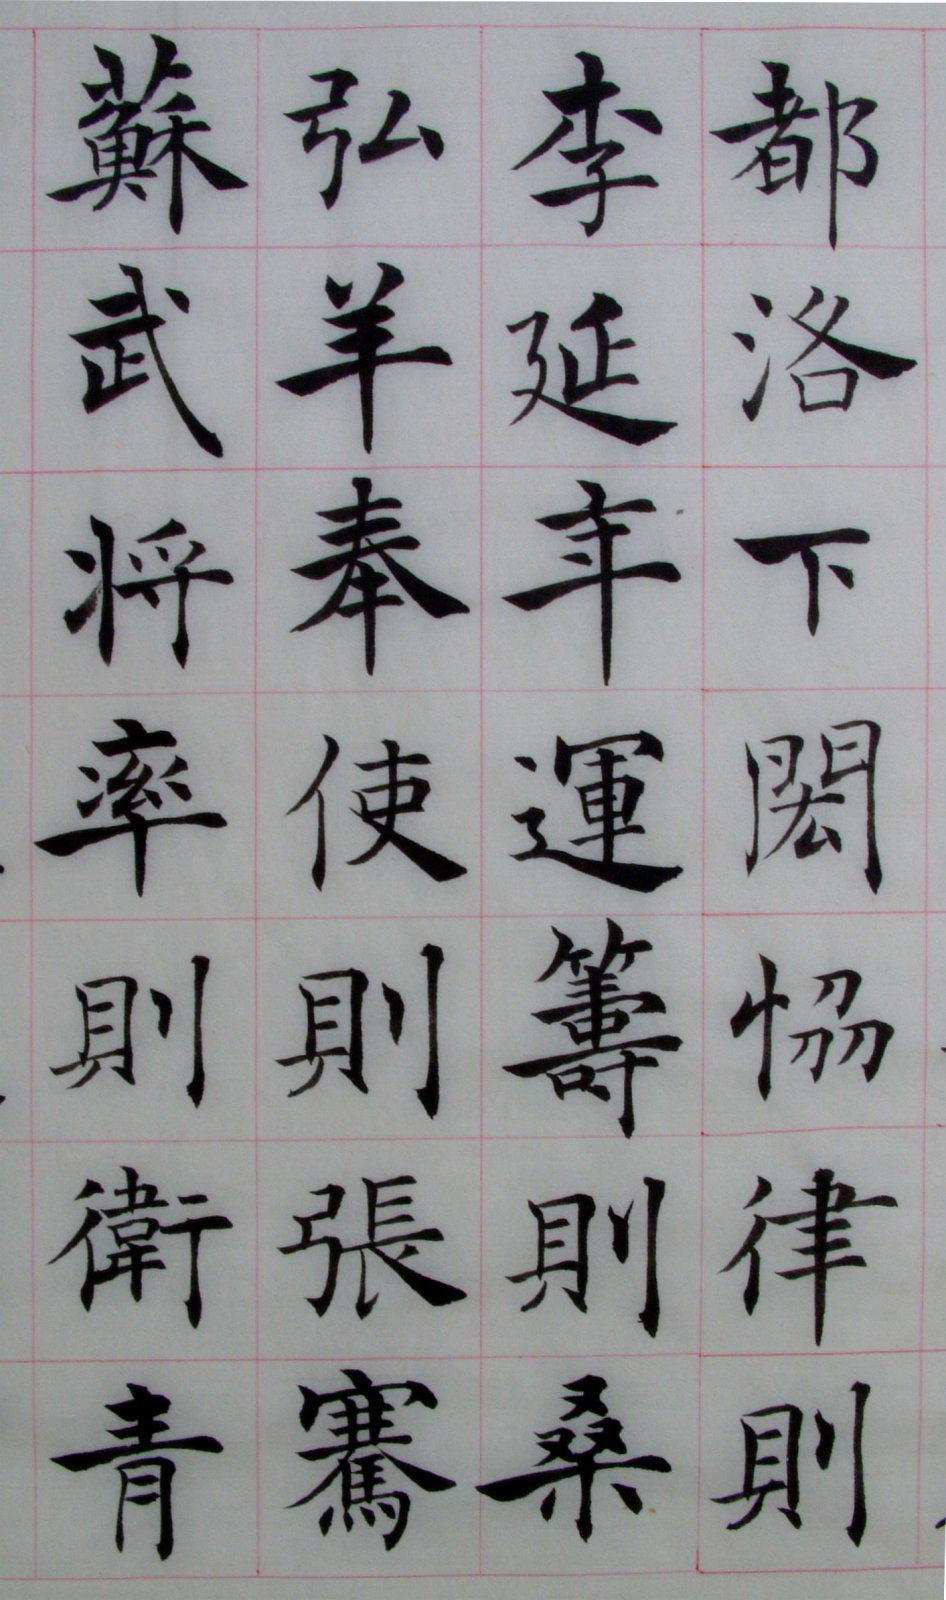 都洛下閎恊律則
李延年運籌則桑
弘羊奉使則張騫
蘇武將率則衛青